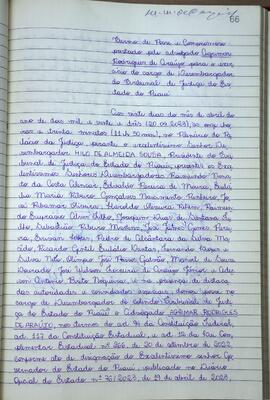 66
Termo de Posse e Compromisso
prestado pelo advogado Agrimar
Rodrigues de Araújo para o exer-
cício do cargo de Desembargador
do Tribunal de Justiça do Es-
tado do Piauí
Aos vinte dias do mês de abril do
ano de dois mil e vinte e três (20.04.2023), às onze ho-
ras e trinta minutos (11h30min), no Plenário do Pa-
lácio da Justiça, perante o excelentíssimo Senhor De-
sembargador HILO DE ALMEIDA SOUSA, Presidente do Tri-
bunal de Justiça do Estado do Piauí, presentes os Ex-
celentíssimos Senhores Desembargadores Raimundo Nona-
to da Costa Alencar, Edvaldo Pereira de Moura, Eulá-
lia Maria Pinheiro,
Ribeiro, Haroldo Oliveira Rehem, Raimun-
do Eufrásio Alves Filho, Joaquim Dias de Santana Fi-
lho, Sebastião Ribeiro Martins, José James Gomes Perei-
ra, Pedro de Alcântara da Silva Ma-
cêdo, Ricardo Gentil Eulálio Dantas,
Silva Neto, Olímpio José Passos Galvão, Manoel de Sousa
Dourado, José Wilson Ferreira de Araújo Júnior e
Antônio Brito Nogueira, e na presença de
autoridades e convidados especiais, tomou posse no
cargo de Desembargador do colendo Tribunal de Justi-
ça do Estado do Piauí o advogado AGRIMAR RODRIGUES
DE ARAÚJO, nos termos do art. 94 da Constituição Federal,
art. 117 da Constituição Estadual, e art. 12 da Lei Com-
plementar Estadual nº 266, de 20 de setembro de 2022,
conforme ato de designação do Excelentíssimo senhor Go-
vernador do Estado do Piauí, publicado no Diário
Oficial do Estado nº 76/2023, de 19 de abril de 2023.